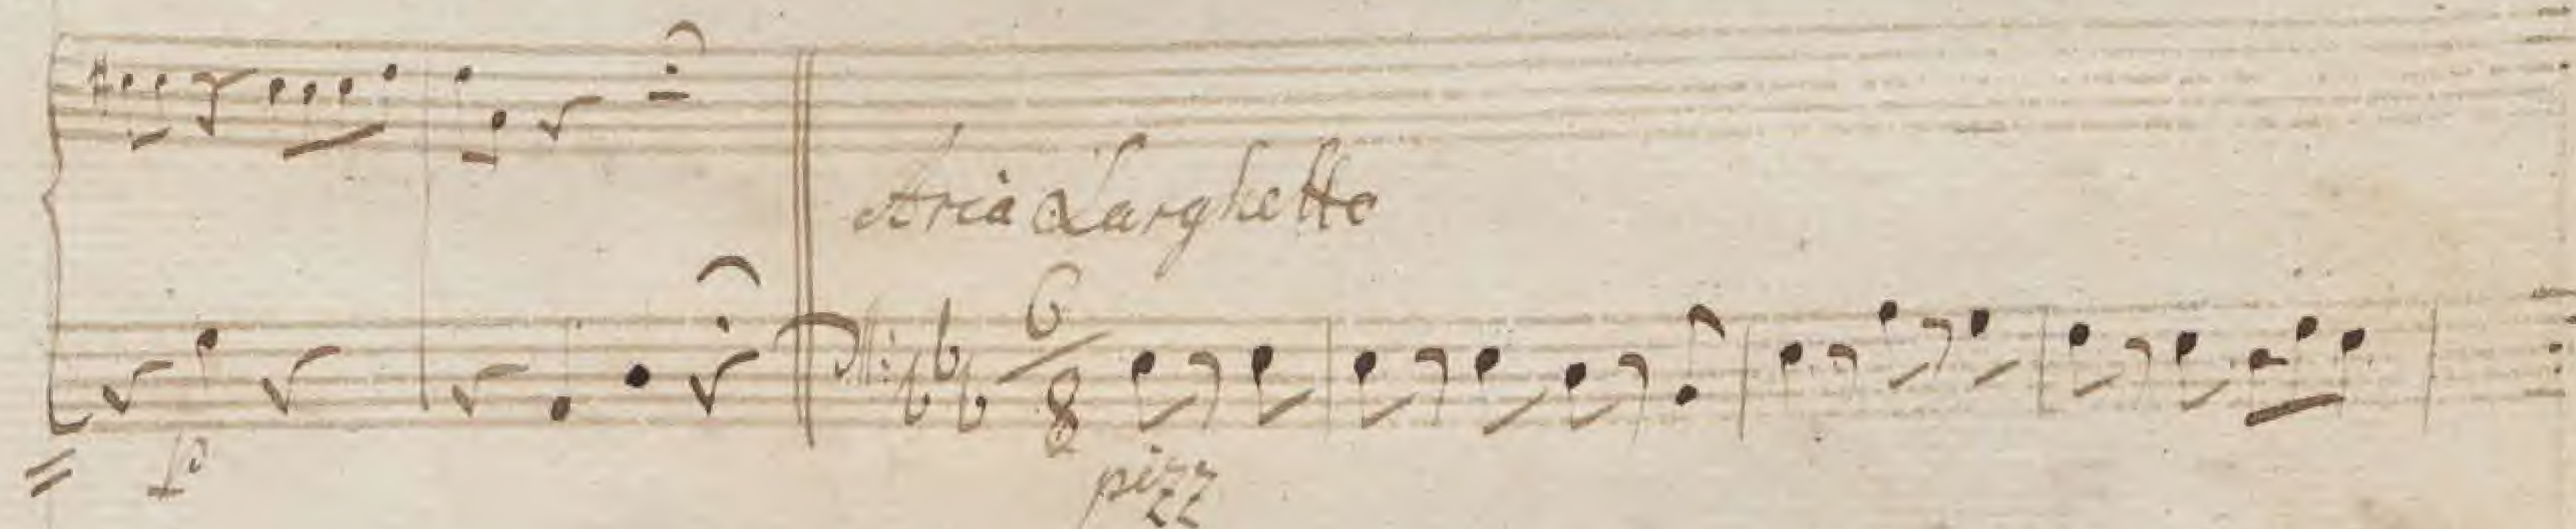 Aria Larghetto
6
8
p
pizz